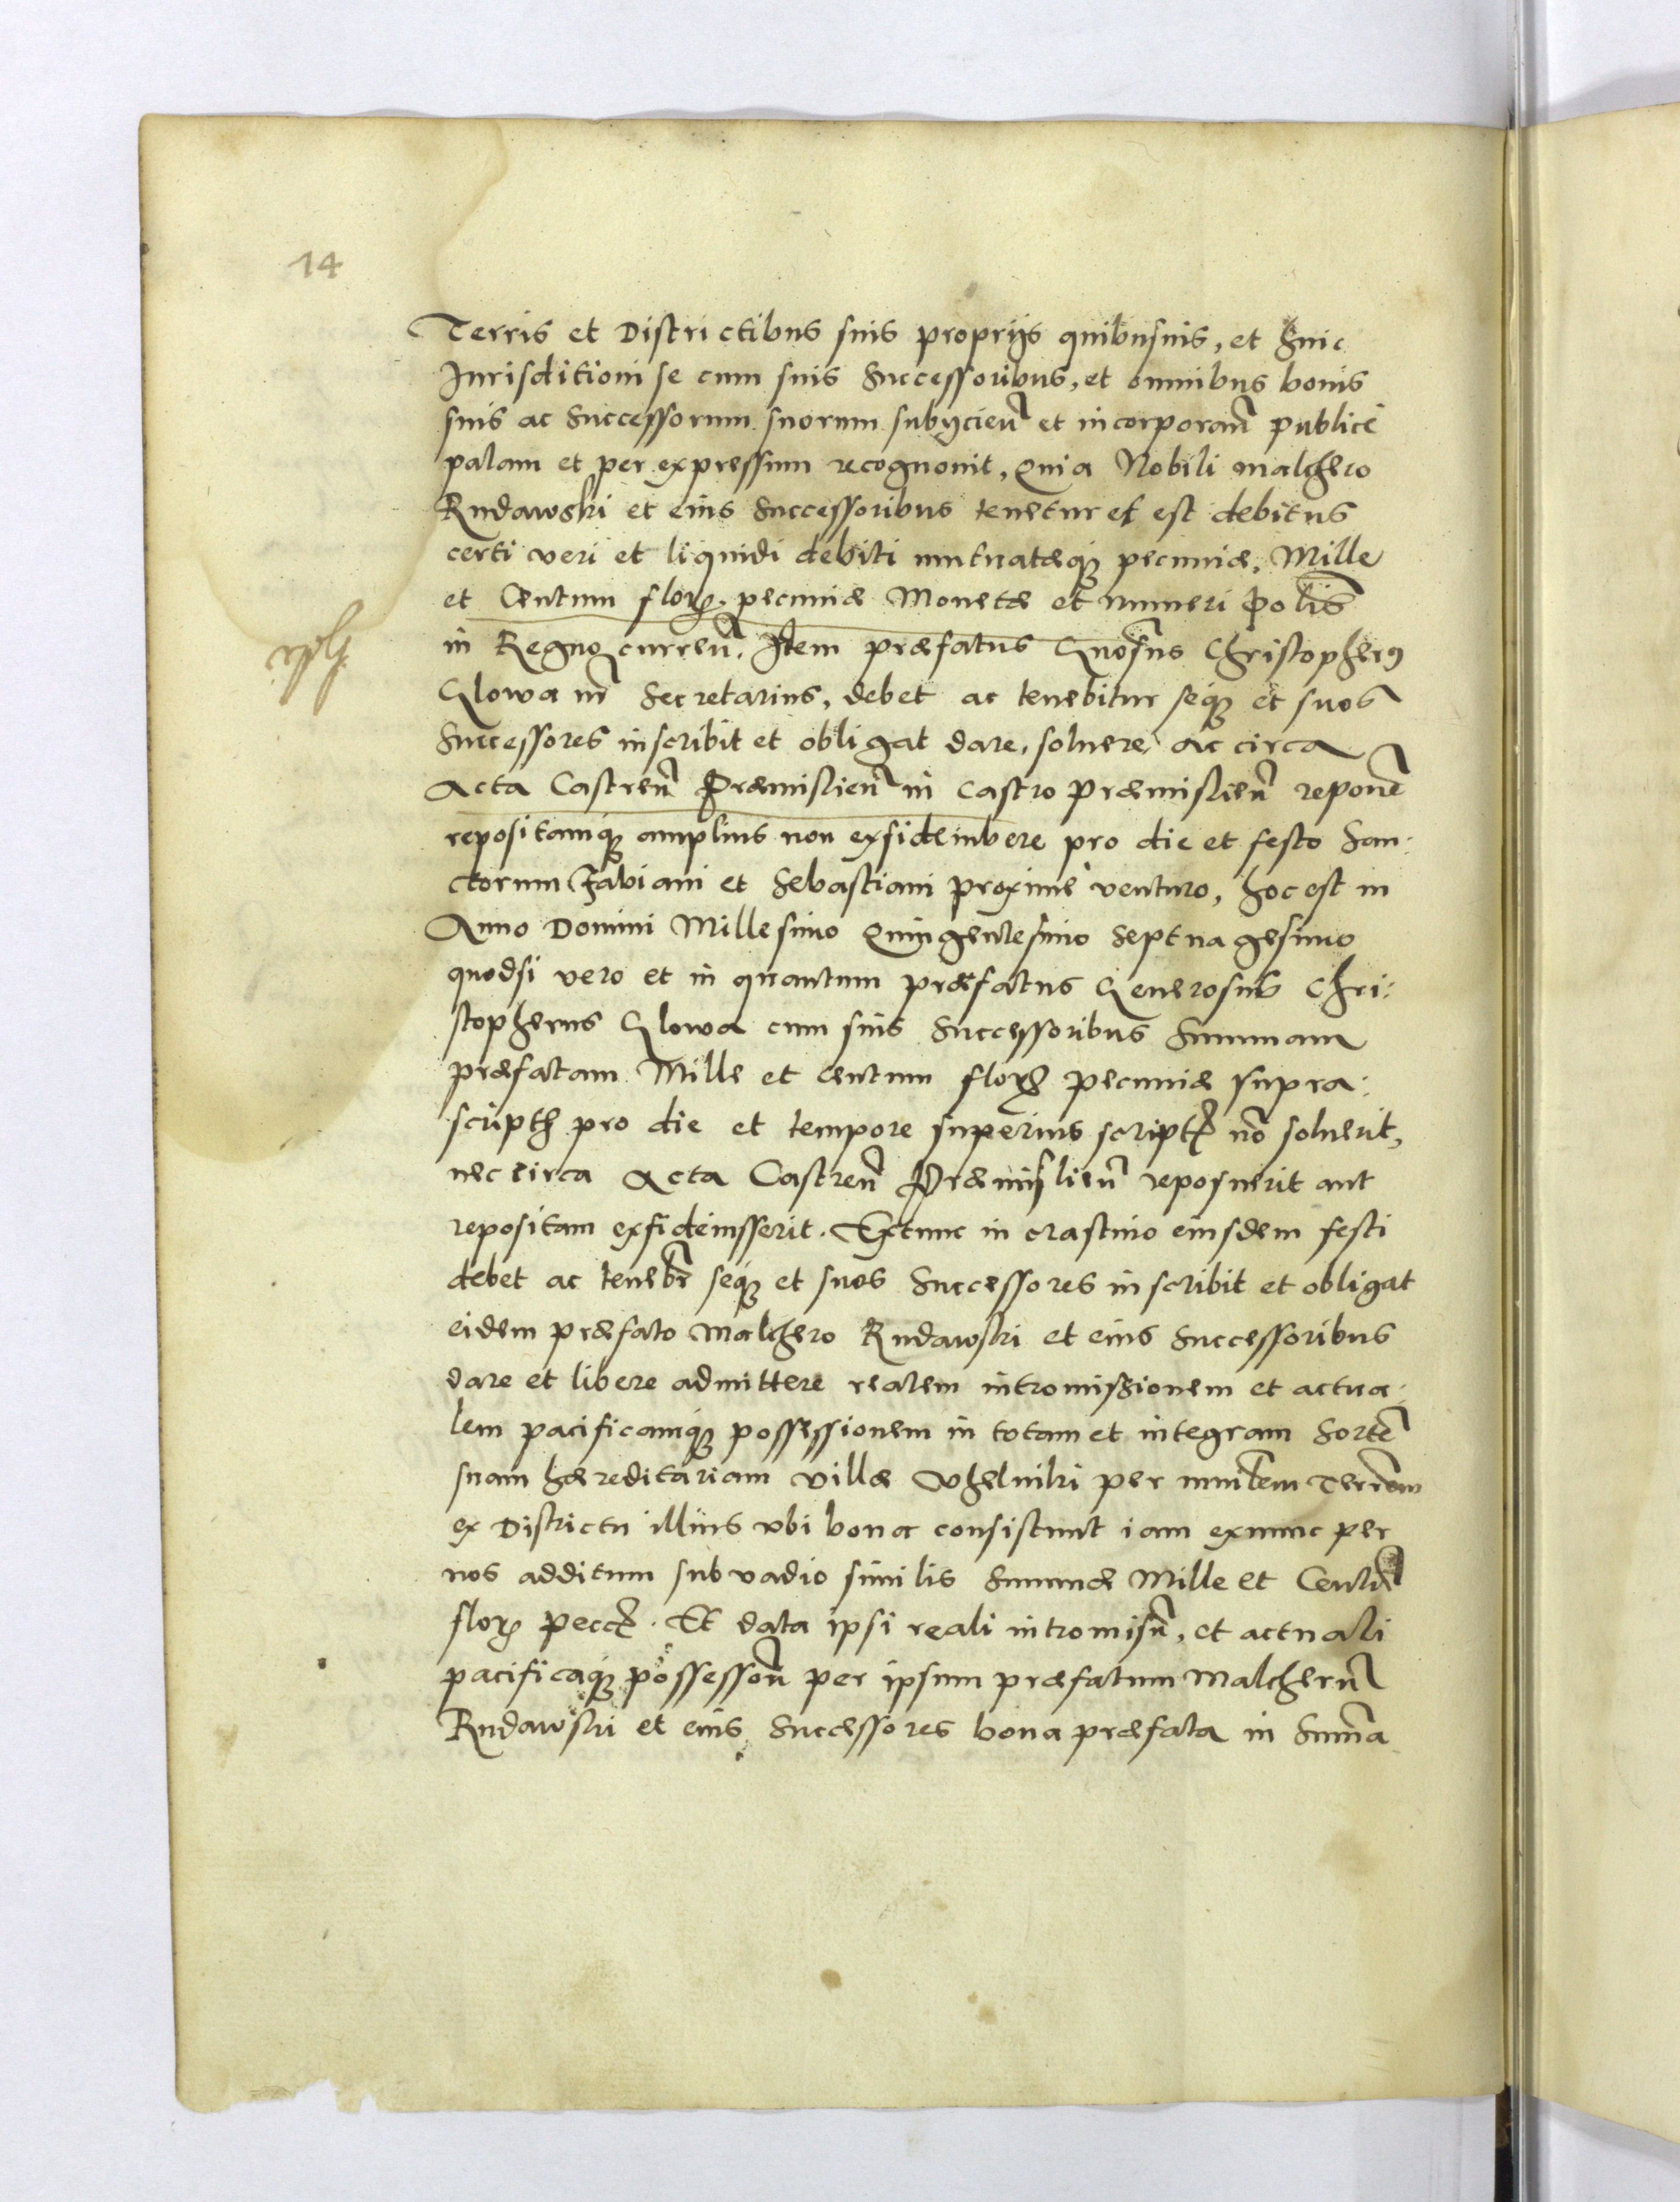 14
Terris et Districtibus suis proprijs quibusuis, et huic
Jurisditioni se cum suis Successoribus, et omnibus bonis
suis ac Successorum suorum subijcien̄ et incorporan̄ publicè
palam et per expressum recognouit, Quia Nobili Malchero
Rudawski et eius Successoribus tenetur et est debitus
certi veri et liquidi debiti mutuatæq; pecuniæ, Mille
et Centum floꝝ. pecuniæ Monetæ et numeri Polīs
in Regno curren̄. Item præfatus Gnosus Christopherꝰ
Glowa nr̄ Secretarius, debet ac tenebitur seq; et suos
Successores inscribit et obligat dare, soluere, ac circa
Acta Castren̄ Præmislien̄ in Castro Præmislien̄ repone
repositamq; amplius non exfideiubere pro die et festo San:
ctorum Fabiani et Sebastiani proximè venturo, hoc est in
Anno Domini Millesimo Quingentesimo Septuagesimo
quodsi vero et in quantum præfatus Generosus Chri:
stopherus Glowa cum suis Successoribus Summam
præfatam Mille et centum floꝝ pecuniæ supra:
script pro die et tempore superius script nō soluerit,
nec circa Acta Castren̄ Præmislien̄ reposuerit aut
repositam exfideiusserit. Extunc in crastino eiusdem festi
debet ac tenebr̄ seq; et suos Successores inscribit et obligat
eidem præfato Malchero Rudawski et eius Successoribus
dare et libere admittere realem intromissionem et actua:
lem pacificamq; possessionem in totam et integram Sortē
suam hæreditariam villæ Vhelniki per mintem Terrem
ex Districtu illius vbi bona consistunt iam exnunc per
nos additum sub vadio similis Summæ Mille et Centū
floꝝ pecc. Et data ipsi reali intromisn̄, et actuali
pacificaq; possesson̄ per ipsum præfatum Malcherū
Rudawski et eius Successores bona præfata in Sum̄a